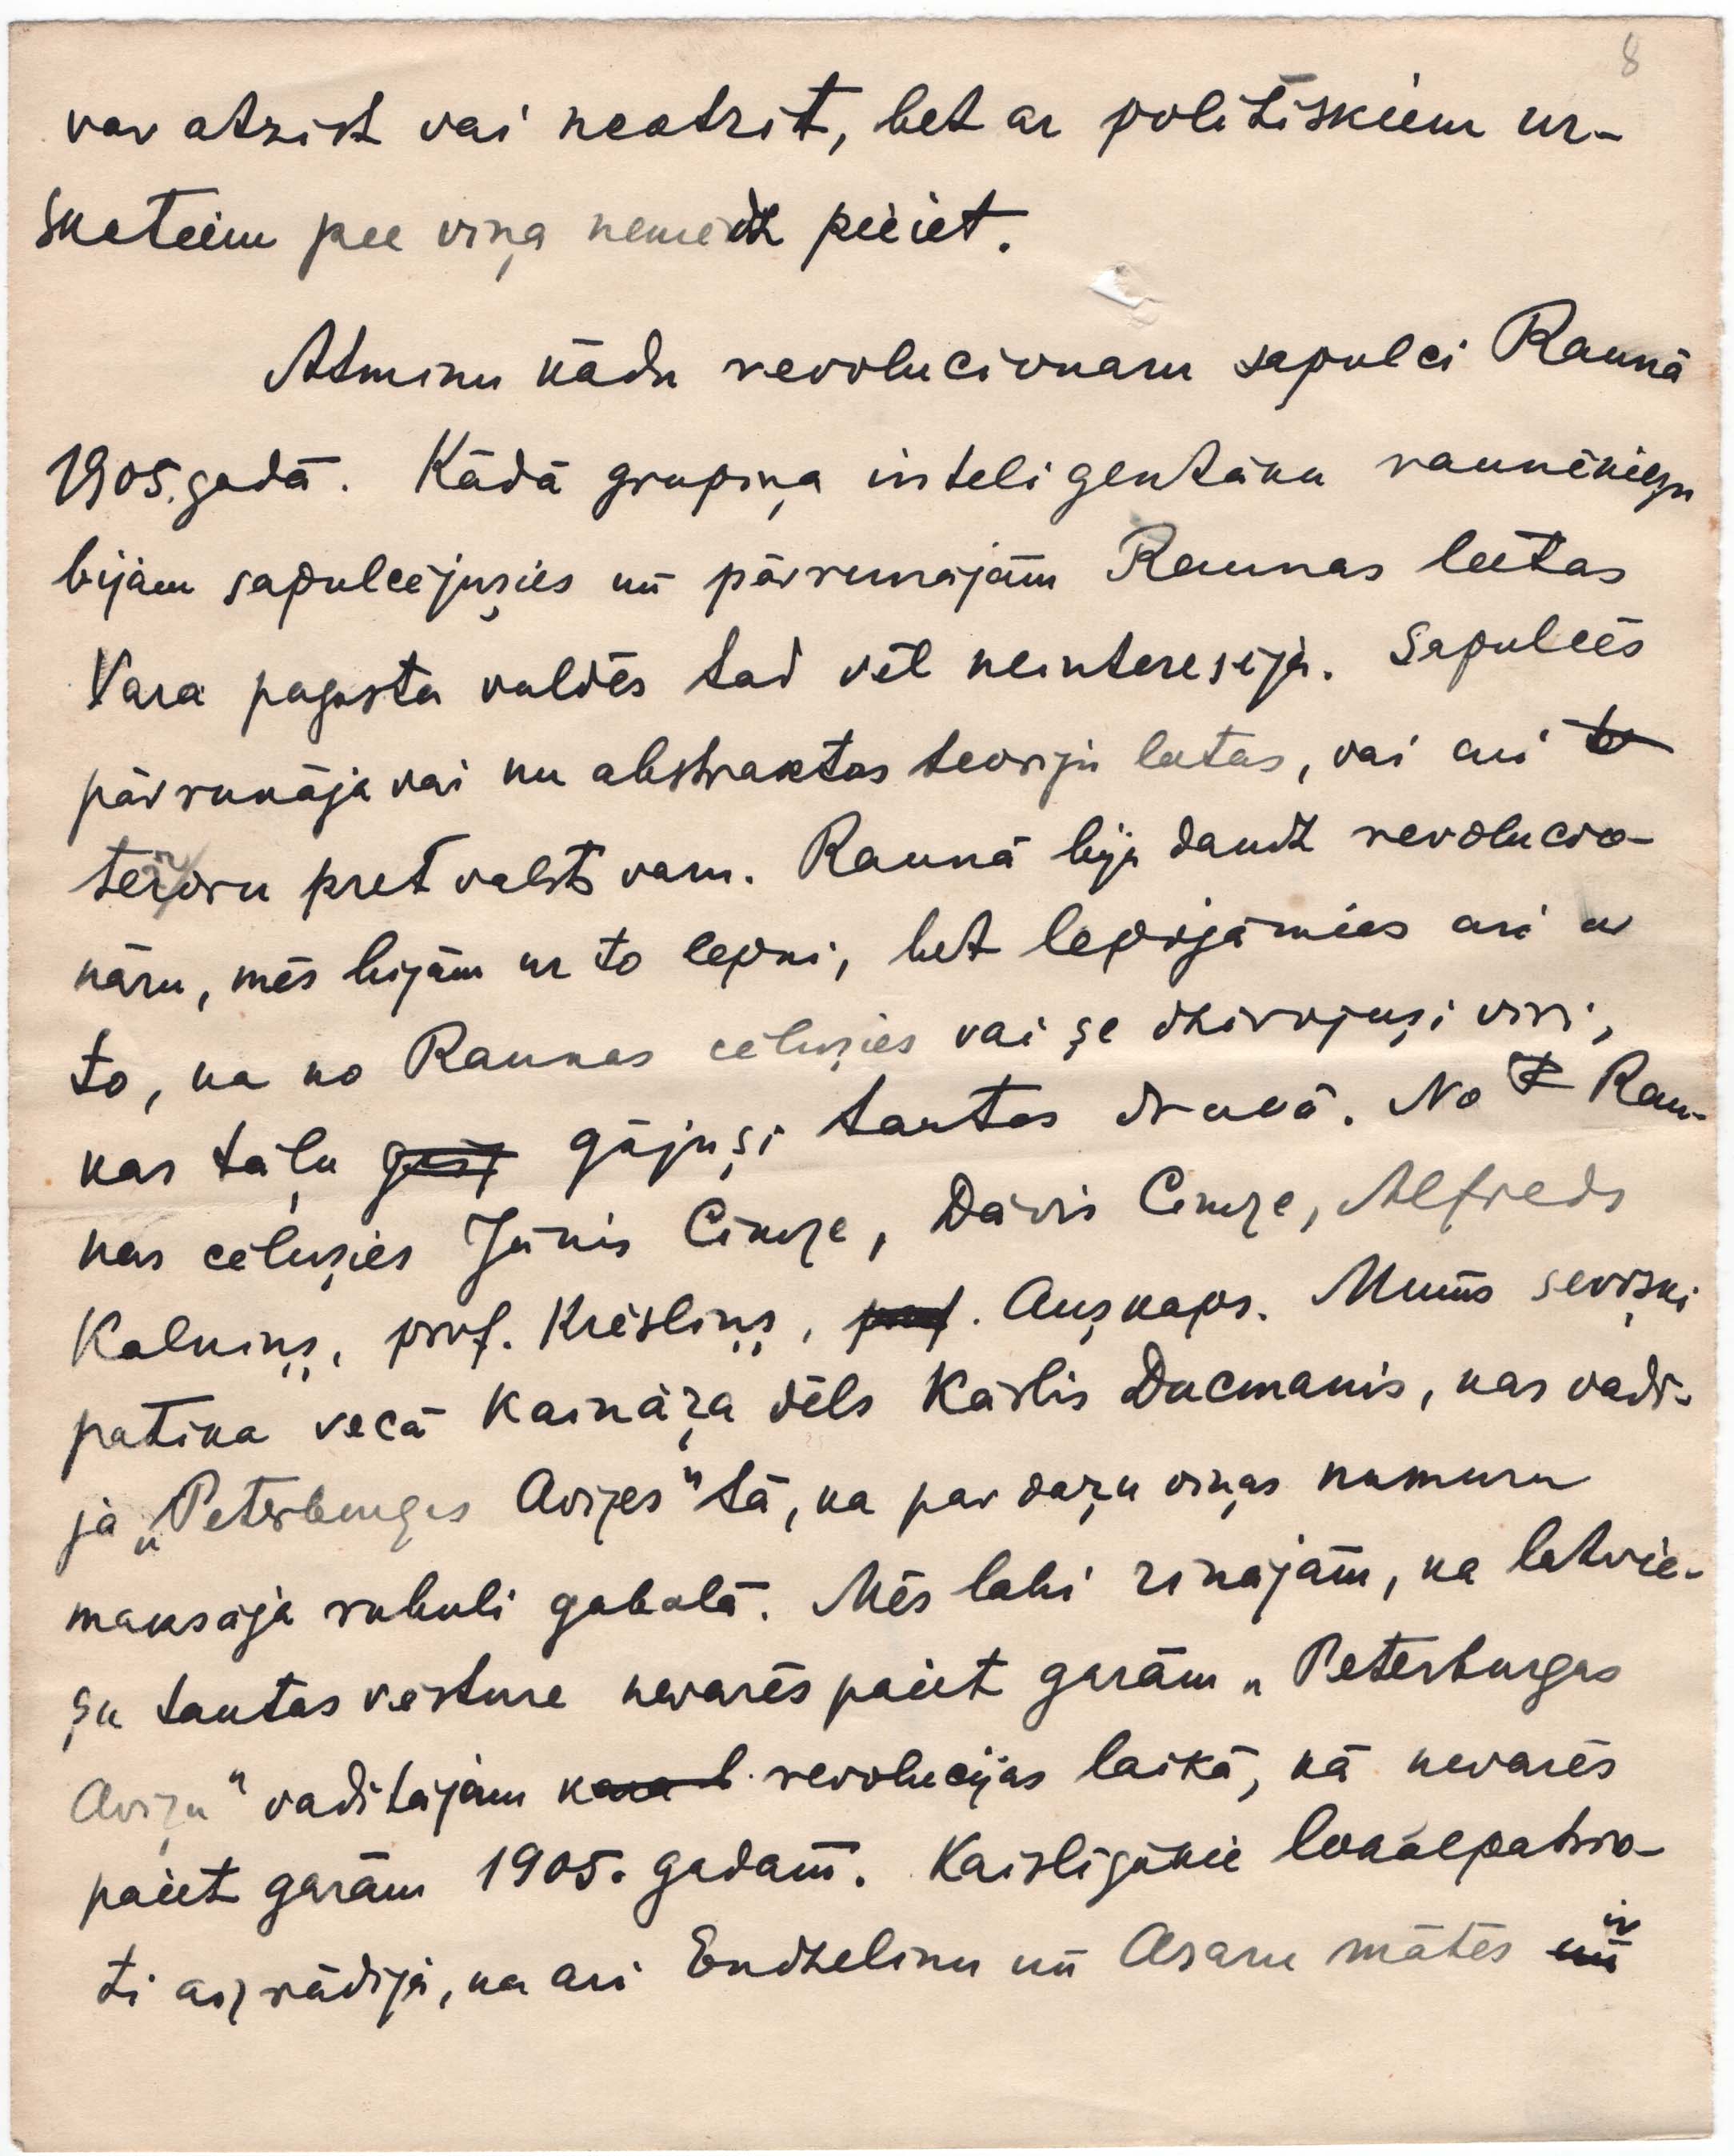 8
var atzist vai neatzit, bet ar politiskiem uz-
skateem pee viņa nemedz pieiet.
Atminu kādu revolucionaru sapulci Raunā
1905. gadā. Kādā grupiņa inteligentāku raunēniešu
bijām sapulcējušies un pārrunājām Raunas lietas
Vara pagasta valdēs tad vēl neinteresēja. Sapulcēs
pārrunāja vai nu abstraktas teoriju lietas, vai ari
teroru pret valsts varu. Raunā bija daudz revolucio-
nāru, mēs bijām uz to lepni, bet lepojāmies ari uz
to, ka no Raunas cēlušies vai še dzivojuši viri,
kas tāļu gājuši tautas druvā. No Rau-
nas cēlušies Jānis Cimze, Dāvis Cimze, Alfreds
Kalniņš, prof. Krēsliņš, prof. Auškaps. Mums sevišķi
patika vecā Kaināža dēls Kārlis Ducmanis, kas vadi-
ja „Peterburgas Avizes" tā, ka par dažu viņas numuru
maksāja rubuli gabalā. Mēs labi zinājām, ka latvie-
šu tautas vēsture nevarēs paiet garām „Peterburgas
Avižu" vaditājam revolucijas laikā, kā nevarēs
paiet garām 1905. gadam. Kaisligākie lokālpatrio-
ti aizrādija, ka ari Endzelinu un Asaru mātēs ir